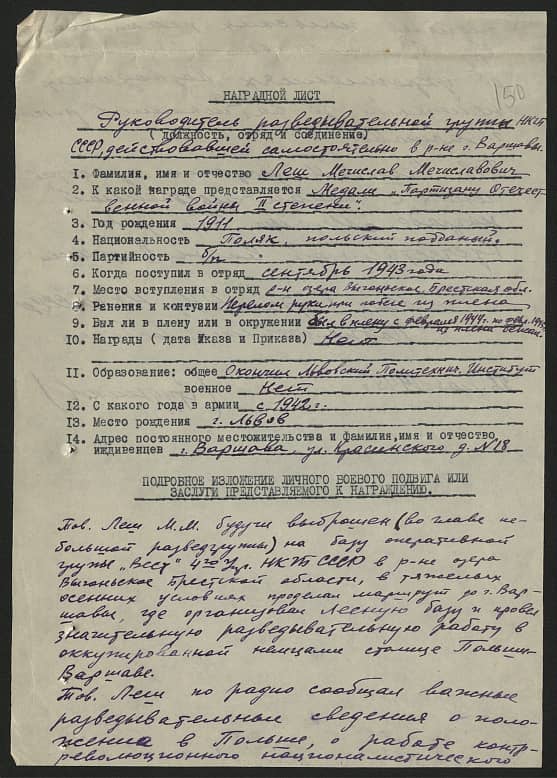 150
НАГРАДНОЙ ЛИСТ
Руководитель разведывательной группы НКГБ
(должность, отряд и соединение)
СССР, действовавшей самостоятельно в р-не г. Варшавы.
1. Фамилия, имя и отчество Леш Мечислав Мечиславович
2. К какой награде представляется Медали "Партизану Отечест-
венной войны II степени".
3. Год рождения 1911
4. Национальность Поляк, польский подданый.
5. Партийность б/п
6. Когда поступил в отряд сентябрь 1943 года
7. Место вступления в отряд р-н озера Выгоньское, Брестская обл.
8. Ранения и контузии Перелом руки при побеге из плена
9. Был ли в плену или в окружении был в плену с февраля 1944г. по февр. 1945
из плена бежал.
10. Награды (дата Указа и Приказа) Нет
11. Образование: общее Окончил Львовский Политехнич. Институт
военное Нет
12. С какого года в армии с 1942 г.
13. Место рождения г. Львов
14. Адрес постоянного местожительства и фамилия,имя и отчество
иждивенцев г. Варшава, ул. Красинского д. N 18
ПОДРОБНОЕ ИЗЛОЖЕНИЕ ЛИЧНОГО БОЕВОГО ПОДВИГА ИЛИ
ЗАСЛУГИ ПРЕДСТАВЛЯЕМОГО К НАГРАЖДЕНИЮ.
Тов. Леш М.М. будучи выброшен (во главе не-
большой разведгруппы) на базу оперативной
групы "Вест" 4го Упр. НКГБ СССР в р-не озера
Выгоньское Брестской области, в тяжелых
осенних условиях проделал маршрут до г. Вар-
шавы, где организовал Лесную базу и провел
значительную разведывательную работу в
оккупированной немцами столице Польши -
Варшаве.
Тов. Леш по радио сообщал важные
разведывательные сведения о поло-
жении в Польше, о работе контр-
революционного националистического